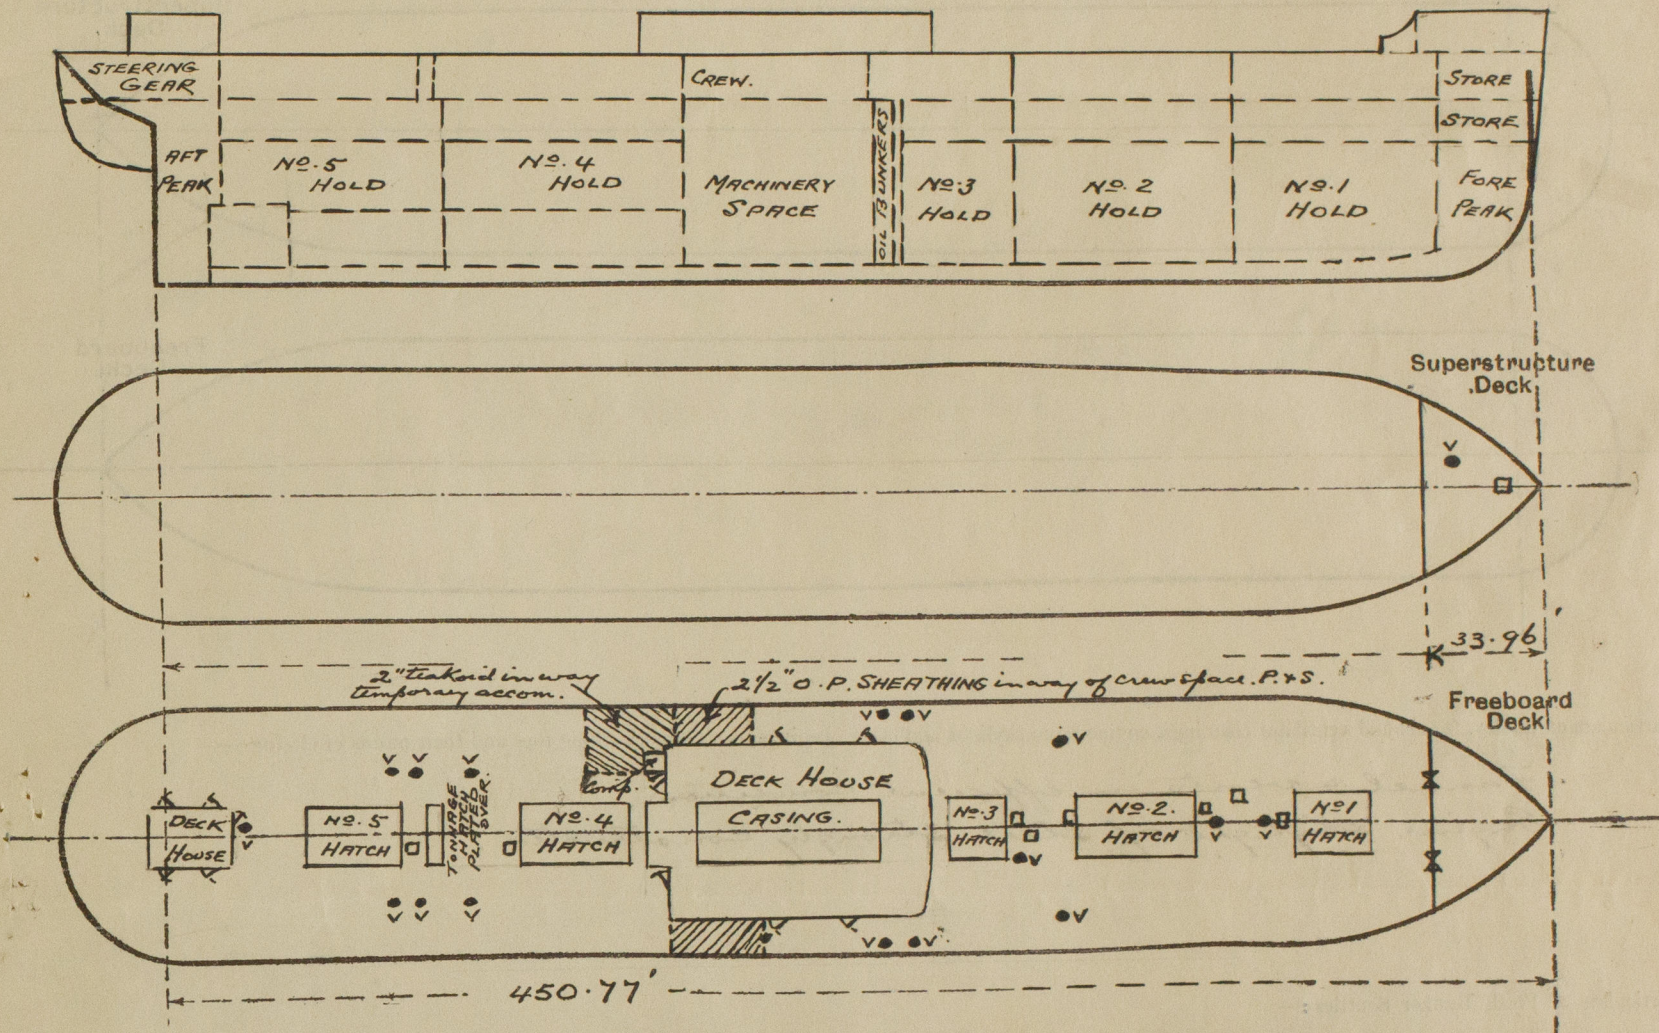 STEERING
GEAR
CREW.
STORE
STORE
AFT
PEAK
No. 5
HOLD
No. 4
HOLD
MACHINERY
SPACE
OIL BUNKERS
No. 3
HOLD
No. 2
HOLD
No. 1
HOLD
FORE
PEAK
Superstructure
Deck
V
33.96'
2" teakoid in way
temporary accom.
2 1/2" O.P. SHEATHING in way of crew space. P. & S.
Freeboard
Deck
V V
V
V V V
Comp.
DECK HOUSE
CASING.
DECK
HOUSE
V
No. 5
HATCH
TONNAGE
HATCH
PLATED
OVER.
No. 4
HATCH
No. 3
HATCH
V
No. 2.
HATCH
V V
No 1
HATCH
V V V
V V
V
450.77'